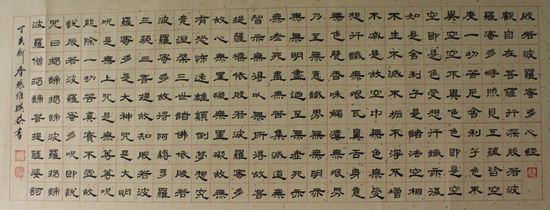 般若波羅蜜多心經
觀自在菩薩行深般若波
羅蜜多時照見五蘊皆空
度一切苦厄舍利子色不
異空空不異色色即是空
空即是色受想行識亦復
如是舍利子是諸法空相
不生不滅不垢不淨不增
不減是故空中無色無受
想行識無眼耳鼻舌身意
無色聲香味觸法無眼界
乃至無意識界無無明亦
無無明盡乃至無老死亦
無老死盡無苦集滅道無
智亦無得以無所得故菩
提薩埵依般若波羅蜜多
故心無罣礙無罣礙故無
有恐怖遠離顛倒夢想究
竟涅槃三世諸佛依般若
波羅蜜多故得阿耨多羅
三藐三菩提故知般若波
羅蜜多是大神咒是大明
咒是無上咒是無等等咒
能除一切苦真實不虛故
說般若波羅蜜多咒即說
咒曰揭諦揭諦波羅揭諦
波羅僧揭諦菩提薩婆訶
丁亥新春 恭書